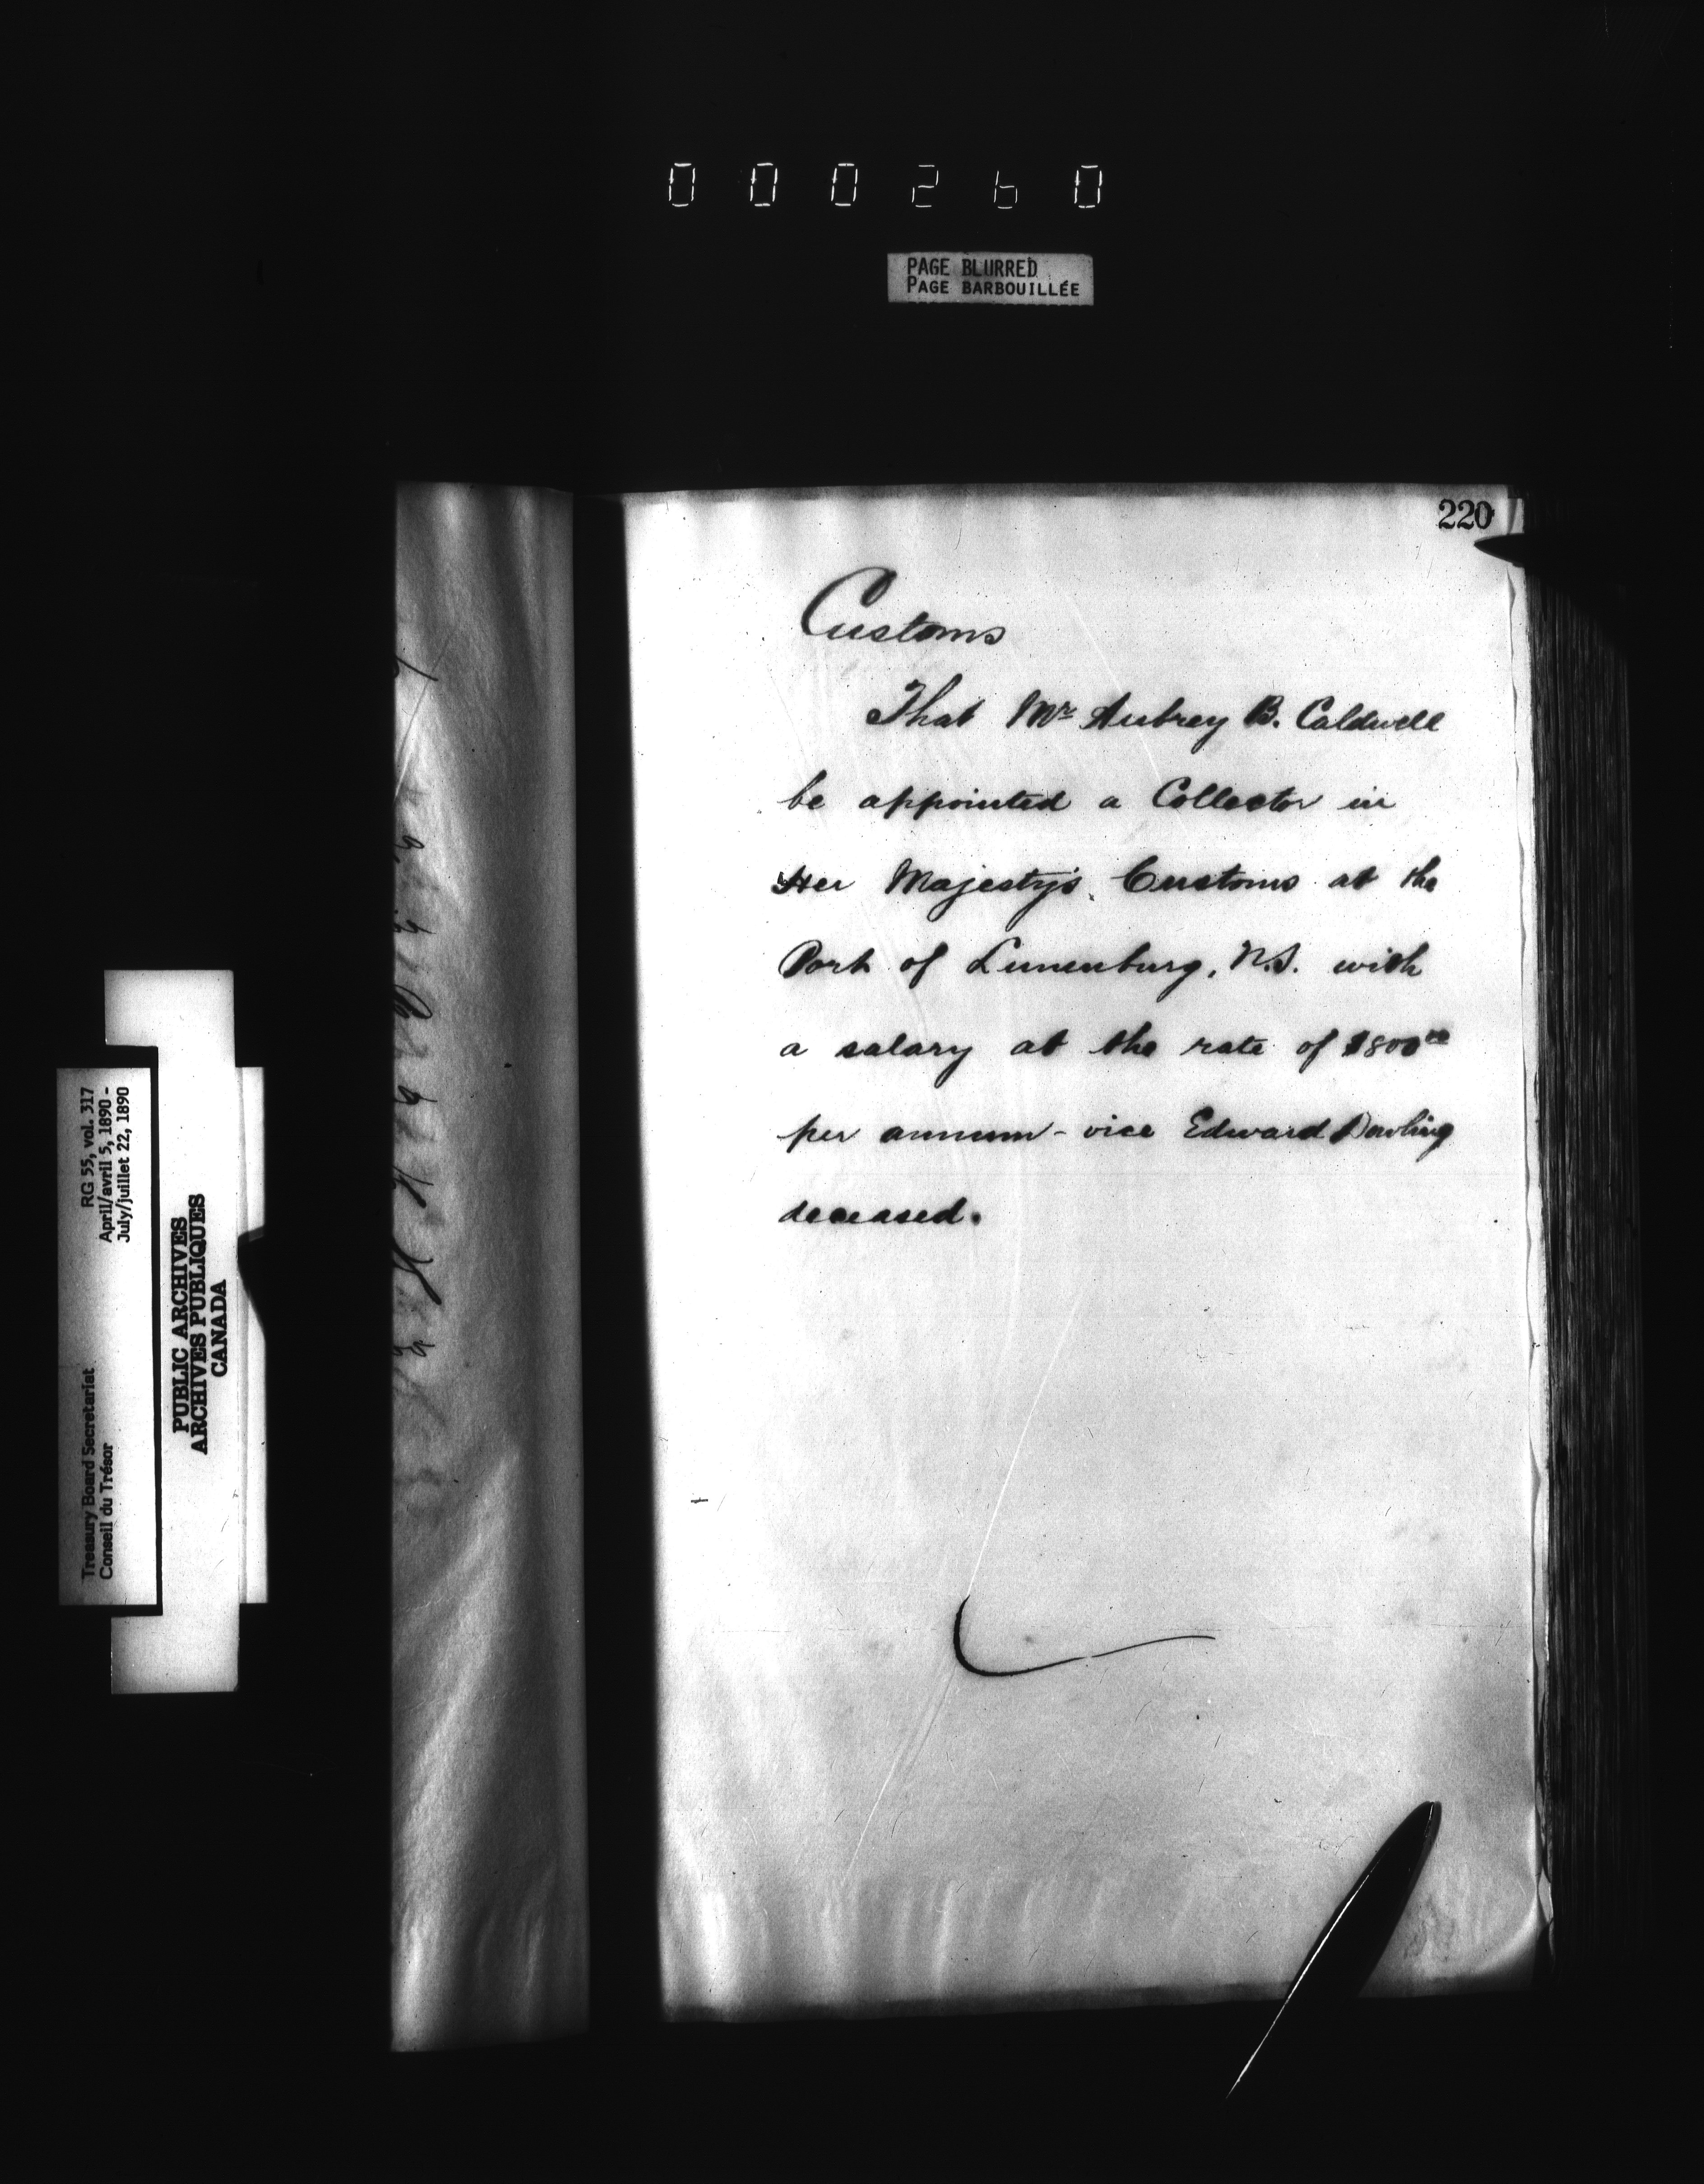 000260
PAGE BLURRED
PAGE BARBOUILLÉE
220
Customs
That Mr Aubrey B. Caldwell
be appointed a Collector in
Her Majesty's Customs at the
Port of Lunenburg, N.S. with
a salary at the rate of $800⁰⁰
per annum - vice Edward Dowling
deceased.
Treasury Board Secretariat RG 55, vol. 317
Conseil du Trésor April/avril 5, 1890 -
July/juillet 22, 1890
PUBLIC ARCHIVES
ARCHIVES PUBLIQUES
CANADA